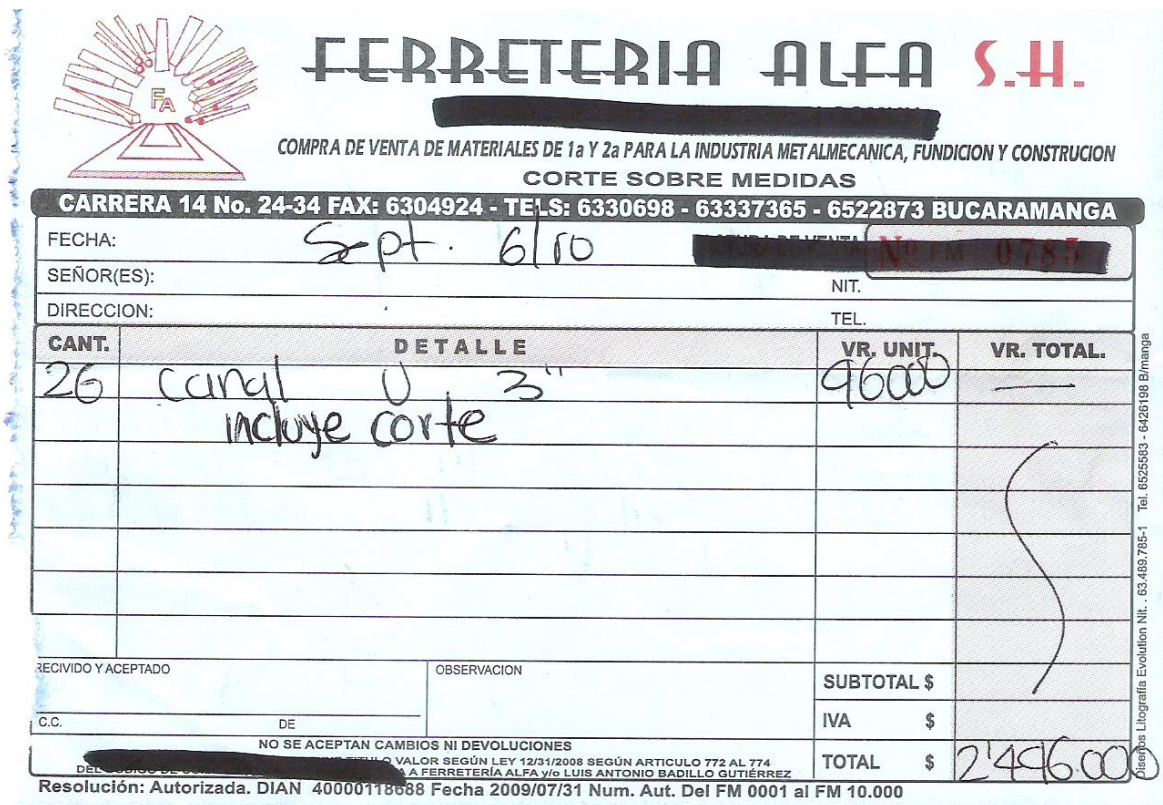 FA
FERRETERIA ALFA S.H.
COMPRA DE VENTA DE MATERIALES DE 1a Y 2a PARA LA INDUSTRIA METALMECANICA, FUNDICION Y CONSTRUCION
CORTE SOBRE MEDIDAS
CARRERA 14 No. 24-34 FAX: 6304924 - TELS: 6330698 - 63337365 - 6522873 BUCARAMANGA
FECHA: Sept. 6/10 FACTURA DE VENTA No FM 0785
SEÑOR(ES): NIT.
DIRECCION: TEL.
CANT. DETALLE VR. UNIT. VR. TOTAL.
26 canal U 3" 96000 —
incluye corte
RECIVIDO Y ACEPTADO OBSERVACION SUBTOTAL $
C.C. DE IVA $
NO SE ACEPTAN CAMBIOS NI DEVOLUCIONES
VALOR SEGÚN LEY 12/31/2008 SEGÚN ARTICULO 772 AL 774
DEL CODIGO DE A FERRETERÍA ALFA y/o LUIS ANTONIO BADILLO GUTIÉRREZ
TOTAL $ 2'496.000
Resolución: Autorizada. DIAN 40000118688 Fecha 2009/07/31 Num. Aut. Del FM 0001 al FM 10.000
Diseños Litografía Evolution Nit. . 63.489.785-1 Tel. 6525583 - 6426198 B/manga